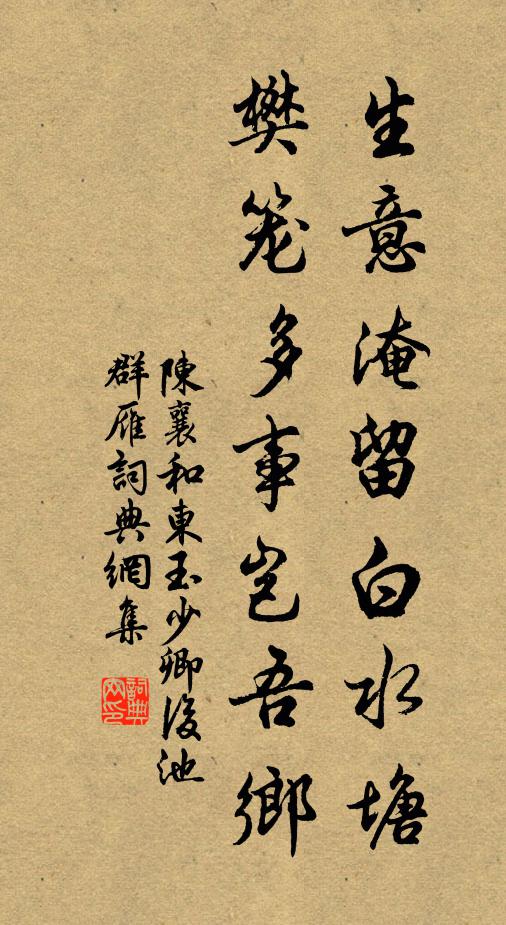 生意淹留白水塘
樊笼多事岂吾鄉
陳襄和東玉少卿後池
群雁詞典網集
詞典網印